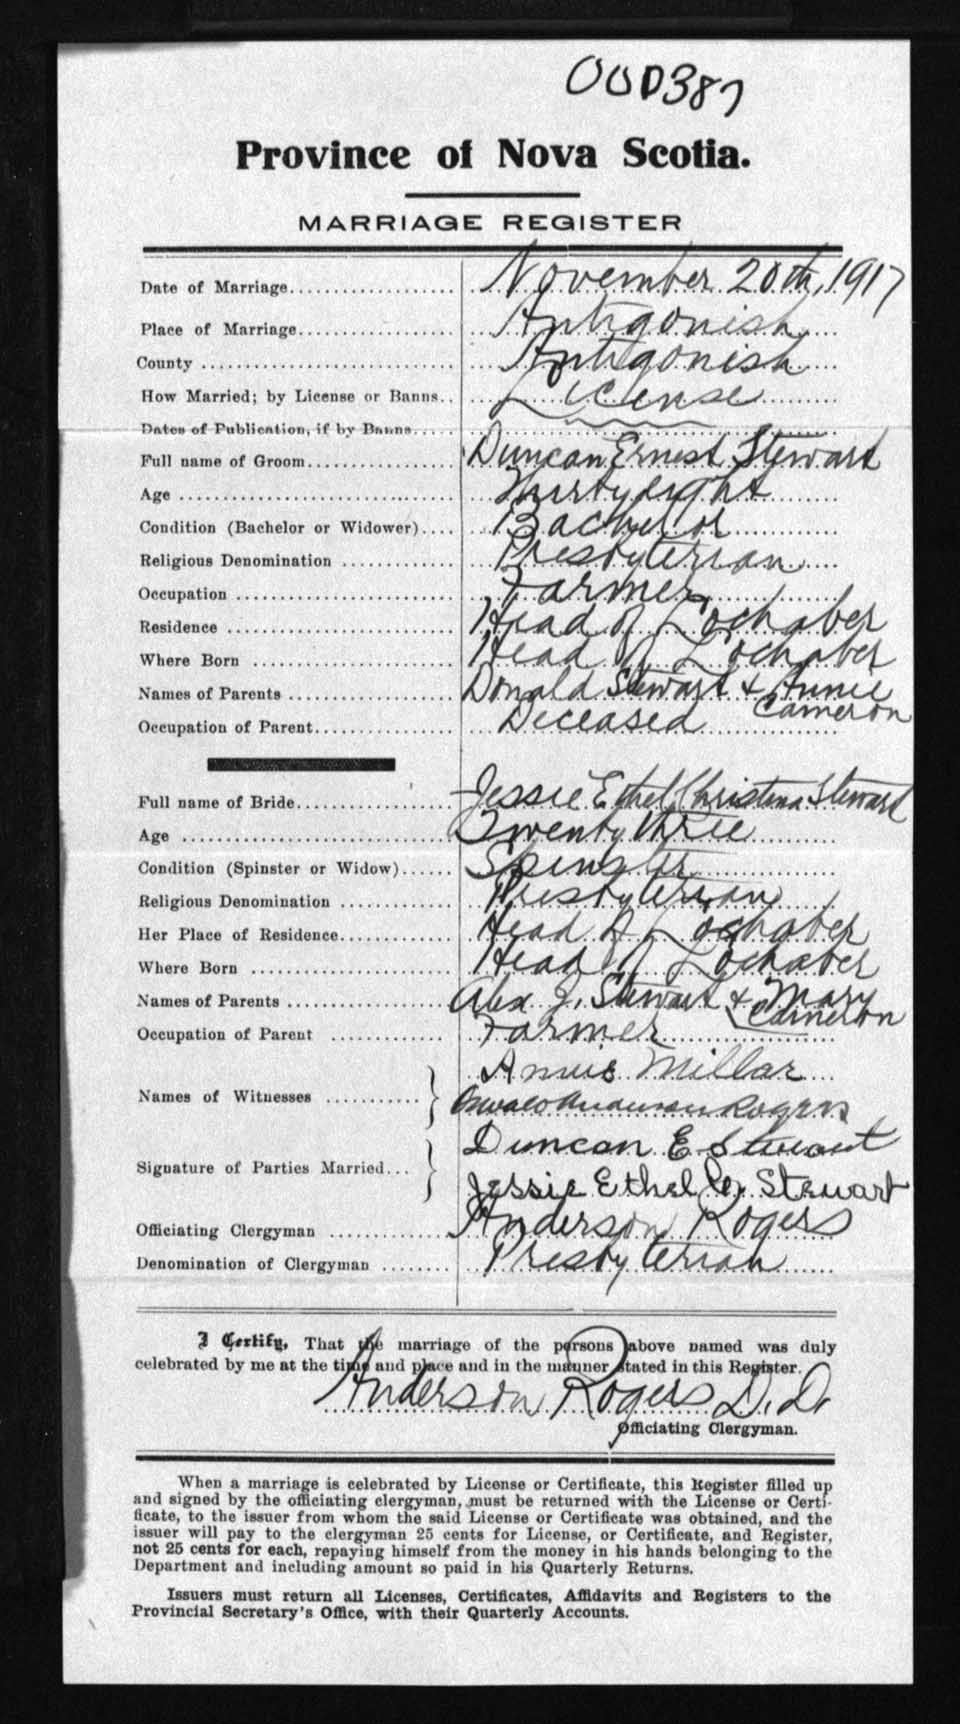 000387
Province of Nova Scotia.
MARRIAGE REGISTER
Date of Marriage November 20th, 1917
Place of Marriage Antigonish
County Antigonish
How Married; by License or Banns License
Dates of Publication, if by Banns
Full name of Groom Duncan Ernest Stewart
Age Thirty eight
Condition (Bachelor or Widower) Bachelor
Religious Denomination Presbyterian
Occupation Farmer
Residence Head of Lochaber
Where Born Head of Lochaber
Names of Parents Donald Stewart & Annie
Cameron
Occupation of Parent Deceased
Full name of Bride Jessie Ethel Christina Stewart
Age Twenty three
Condition (Spinster or Widow) Spinster
Religious Denomination Presbyterian
Her Place of Residence Head of Lochaber
Where Born Head of Lochaber
Names of Parents Alex J. Stewart & Mary
Cameron
Occupation of Parent Farmer
Annie Millar
Names of Witnesses
Anderson Rogers
Duncan E Stewart
Signature of Parties Married
Jessie Ethel C. Stewart
Officiating Clergyman Anderson Rogers
Denomination of Clergyman Presbyterian
I Certify, That the marriage of the persons above named was duly
celebrated by me at the time and place and in the manner stated in this Register.
Anderson Rogers D.D.
Officiating Clergyman.
When a marriage is celebrated by License or Certificate, this Register filled up
and signed by the officiating clergyman, must be returned with the License or Certi-
ficate, to the issuer from whom the said License or Certificate was obtained, and the
issuer will pay to the clergyman 25 cents for License, or Certificate, and Register,
not 25 cents for each, repaying himself from the money in his hands belonging to the
Department and including amount so paid in his Quarterly Returns.
Issuers must return all Licenses, Certificates, Affidavits and Registers to the
Provincial Secretary's Office, with their Quarterly Accounts.